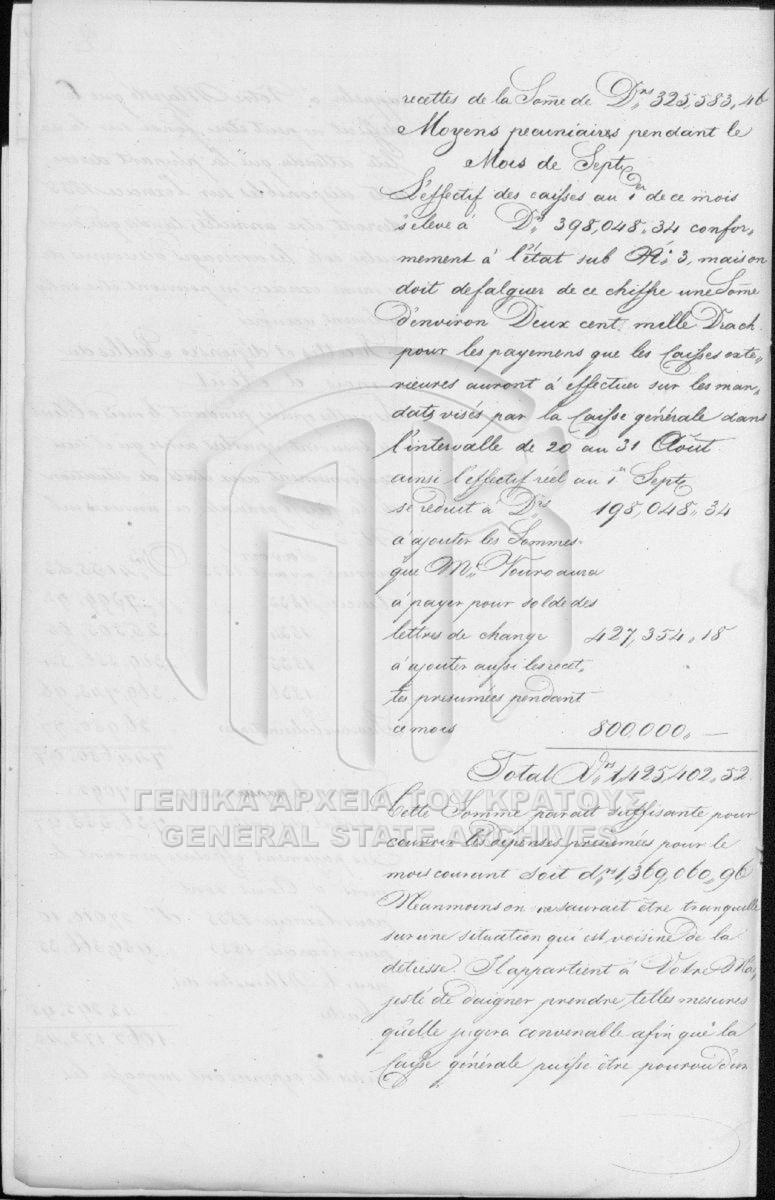 recettes de la Som̃e de Drs 325,583,46
Moyens pecuniaires pendant le
Mois de Septbre
L'effectif des caisses au 1er de ce mois
s'élève à Drs 398,048,,34 confor„
mement à l'état sub № 3, mais on
doit defalquer de ce chiffre une Som̃e
d'environ Deux cent mille Drach.
pour les payemens que les Caisses exte„
rieures auront à effectuer sur les man„
dats visés par la Caisse générale dans
l'intervalle de 20 au 31 Août
ainsi l'effectif réel au 1er Septbre
se reduit à Drs 198,048,,34
à ajouter les Sommes
que Mr Vouro aura
à payer pour solde des
lettres de change 427,354,,18
à ajouter aussi les recet„
tes presumées pendant
ce mois 800,000,, —
Total Drs 1,425,402,,52
ΓΕΝΙΚΑ ΑΡΧΕΙΑ ΤΟΥ ΚΡΑΤΟΥΣ
GENERAL STATE ARCHIVES
Cette Somme parait suffisante pour
couvrir les depenses presumées pour le
mois courant soit drs 1,369,060,,96
Neanmoins on ne saurait être tranquille
sur une situation qui est voisine de la
detresse. Il appartient à Votre Ma„
jesté de daigner prendre telles mesures
qu'elle jugera convenable afin que la
Caisse générale puisse être pourvu d'un